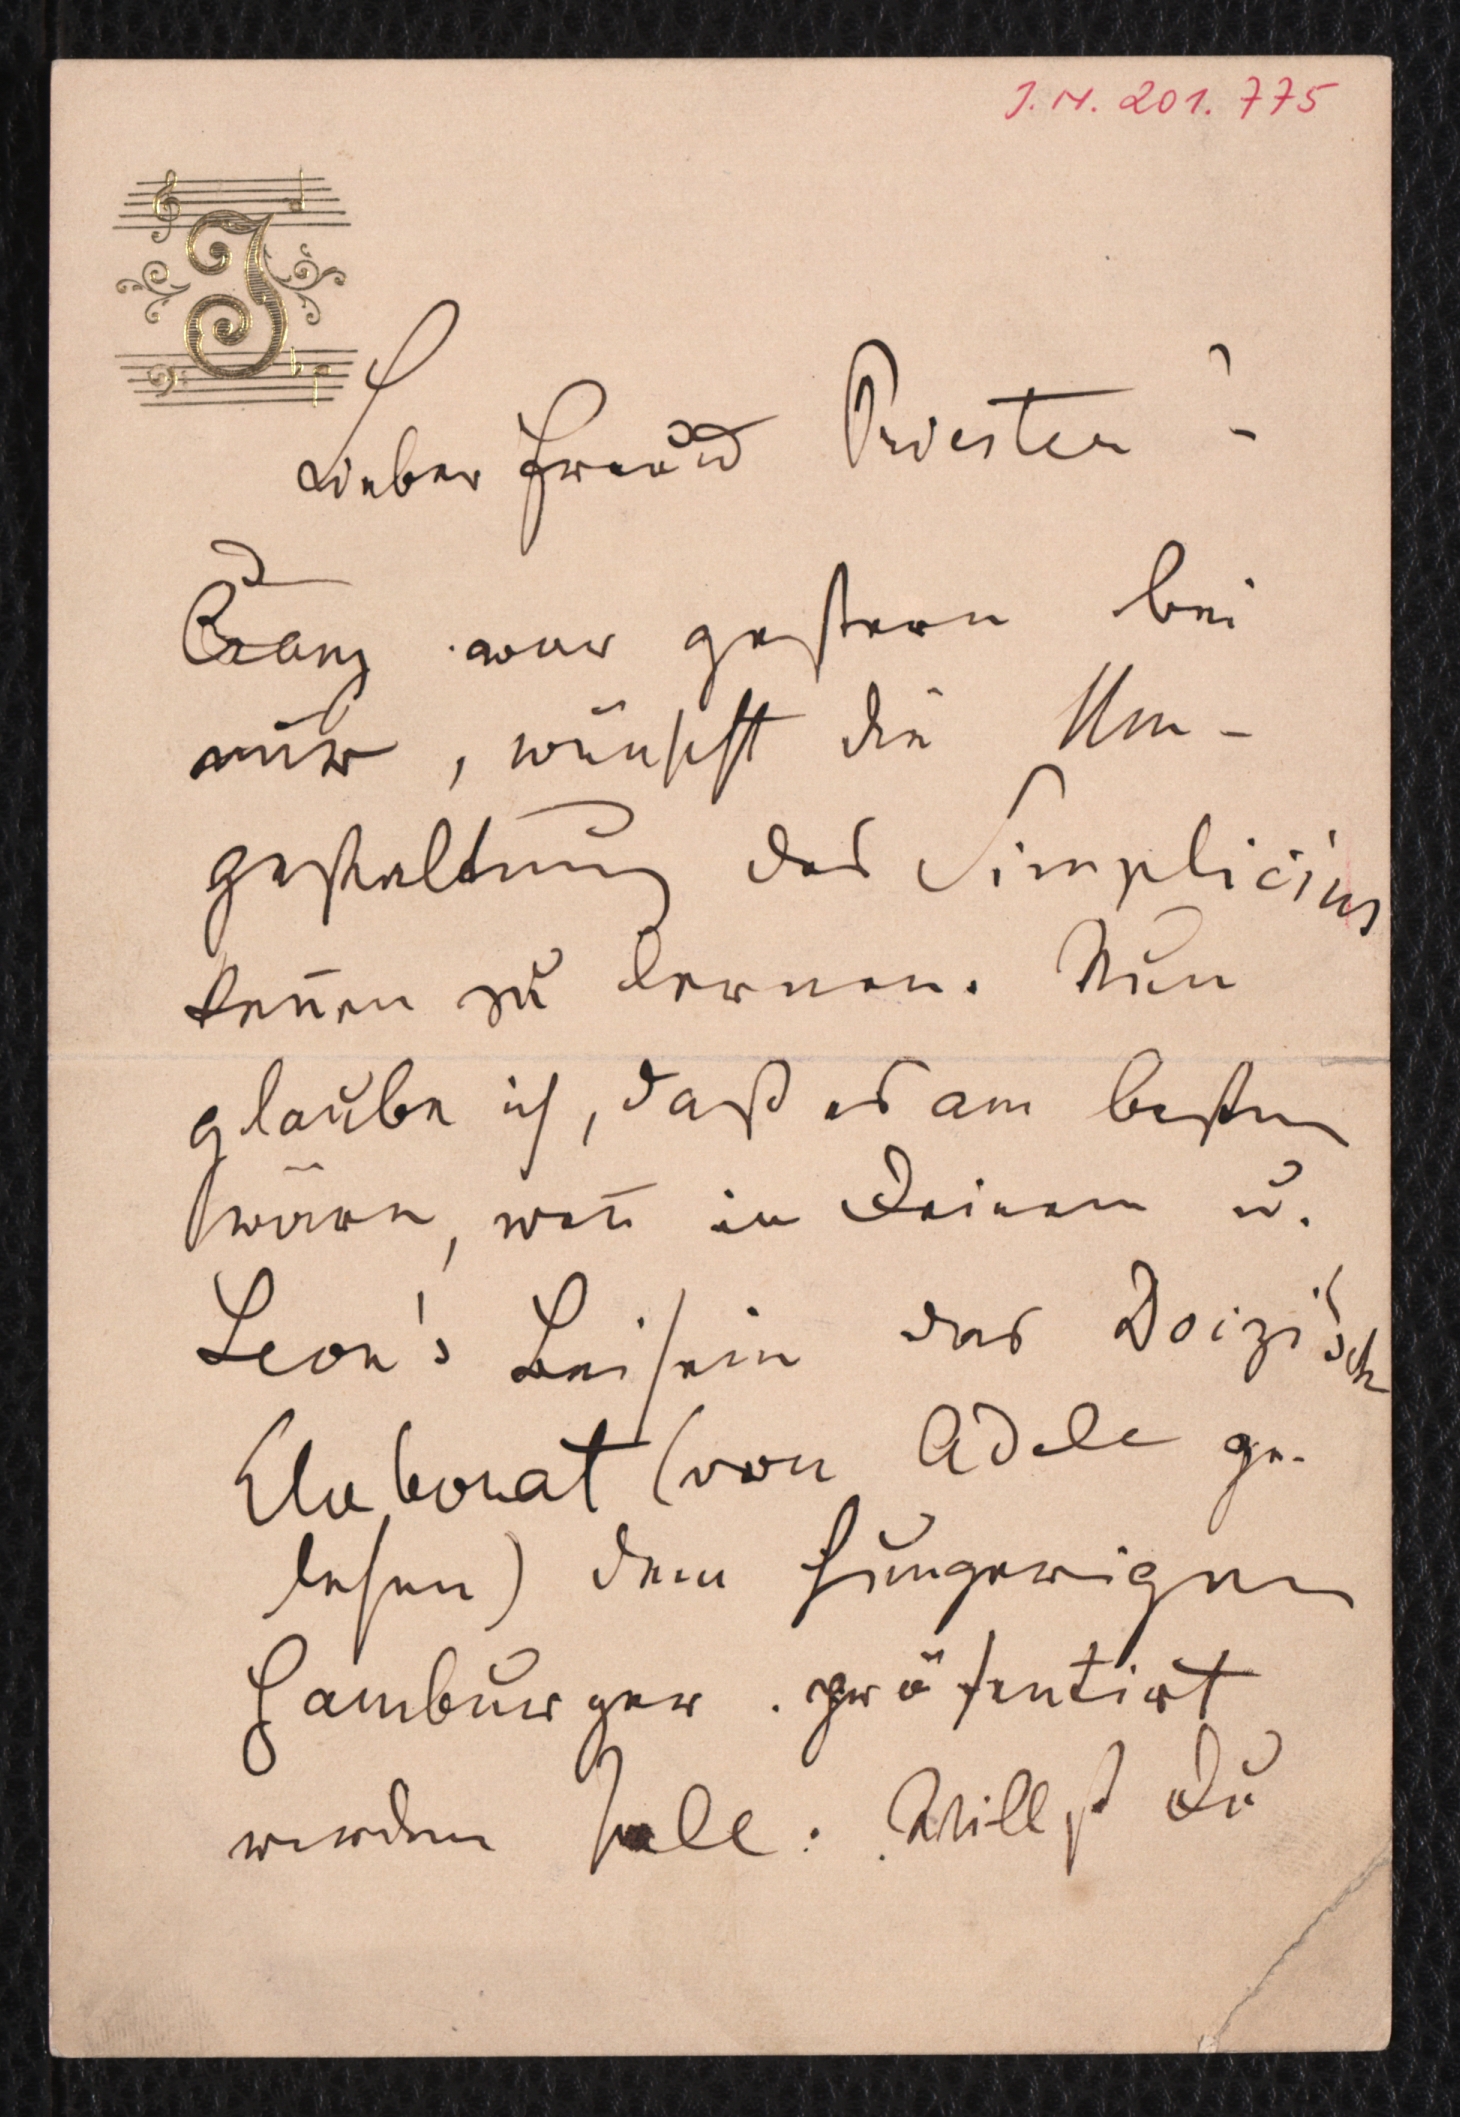 J.N. 201.775
J
Lieber Freund Priester! -
Cranz war gestern bei
mir, wünscht die Um-
gestaltung des Simplicius
keñen zu lernen. Nun
glaube ich, daß es am besten
wäre, weñ in Deinem u.
Leon's Beisein das Doizi'sch
Elaborat (von Adele ge-
lesen) dem hungerigen
Hamburger präsentirt
werden solle. Willst Du